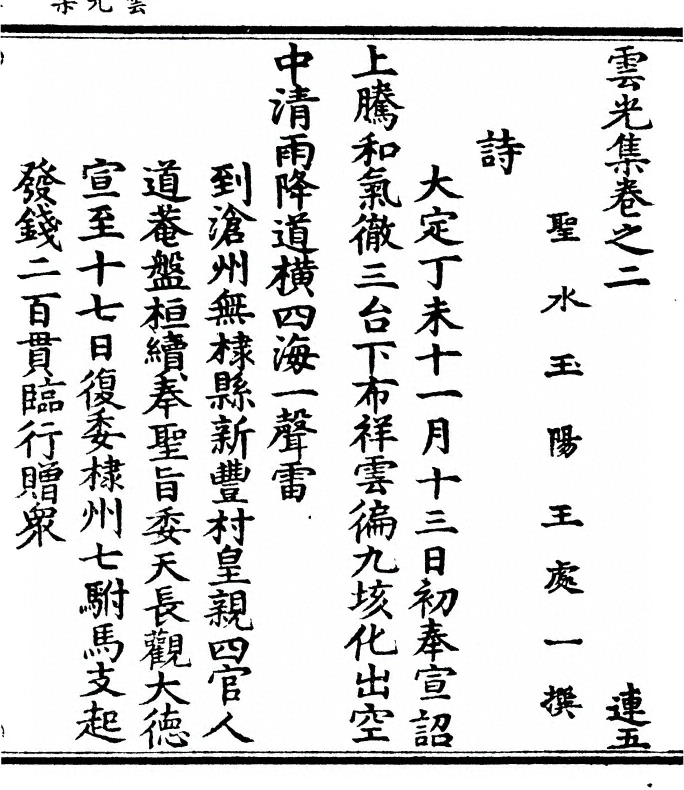 雲光集卷之二 連五
聖水玉陽王處一撰
詩
大定丁未十一月十三日初奉宣詔
上騰和氣徹三台下布祥雲徧九垓化出空
中清雨降道橫四海一聲雷
到滄州無棣縣新豐村皇親四官人
道菴盤桓續奉聖旨委天長觀大德
宣至十七日復委棣州七駙馬支起
發錢二百貫臨行贈衆